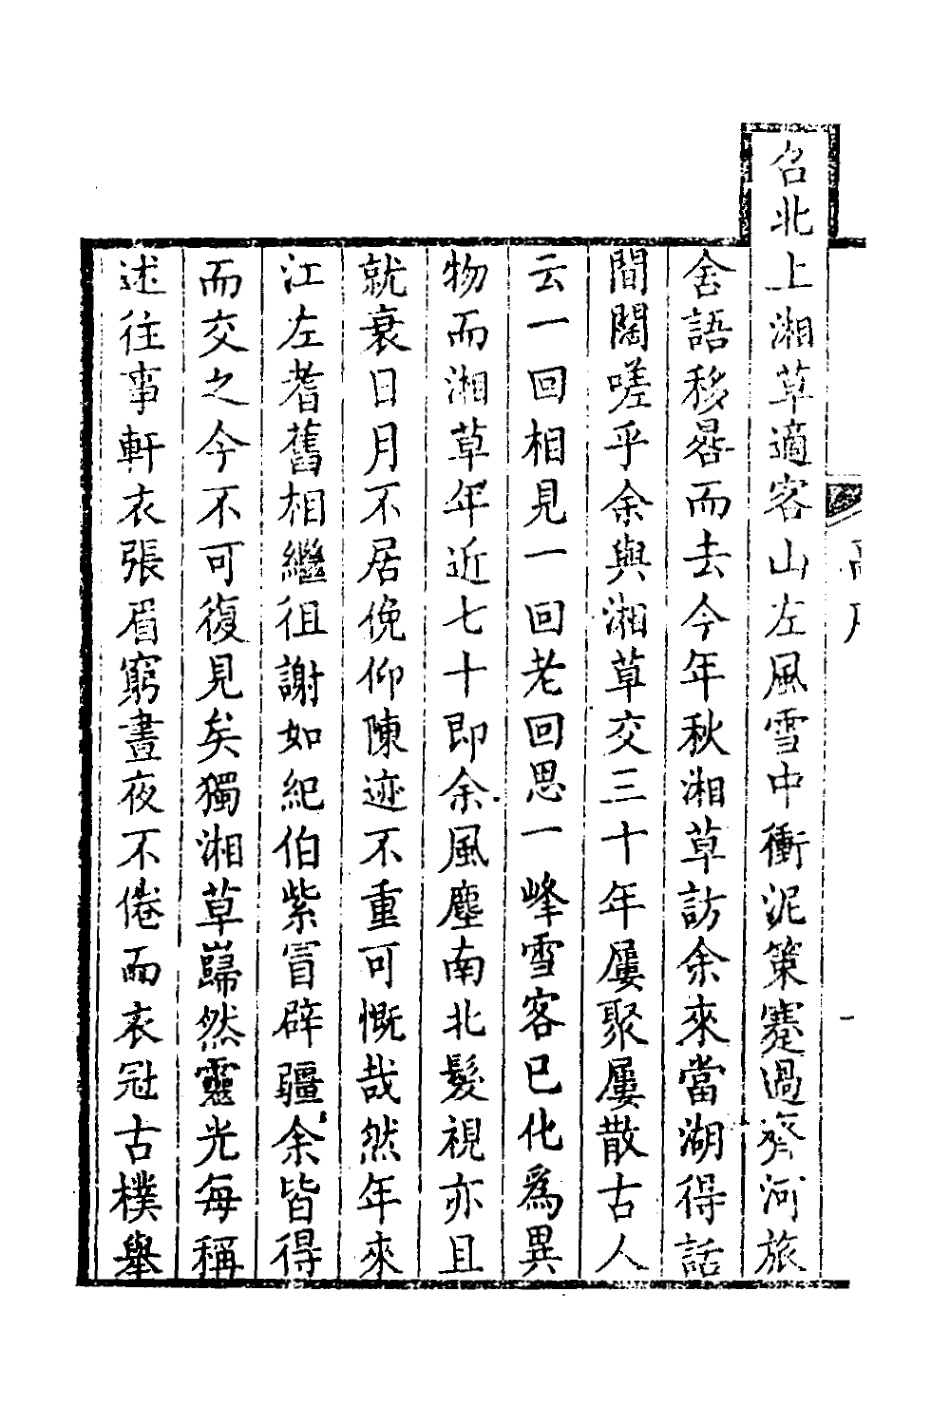 召北上湘草適客山左風雪中衝泥策蹇過齊河旅
舍語移晷而去今年秋湘草訪余來當湖得話
間闊嗟乎余與湘草交三十年屢聚屢散古人
云一回相見一回老回思一峰雪客已化為異
物而湘草年近七十即余風塵南北髮視亦且
就衰日月不居俛仰陳迹不重可慨哉然年來
江左耆舊相繼徂謝如紀伯紫冒辟疆余皆得
而交之今不可復見矣獨湘草巋然靈光每稱
述往事軒衣張眉窮晝夜不倦而衣冠古樸舉